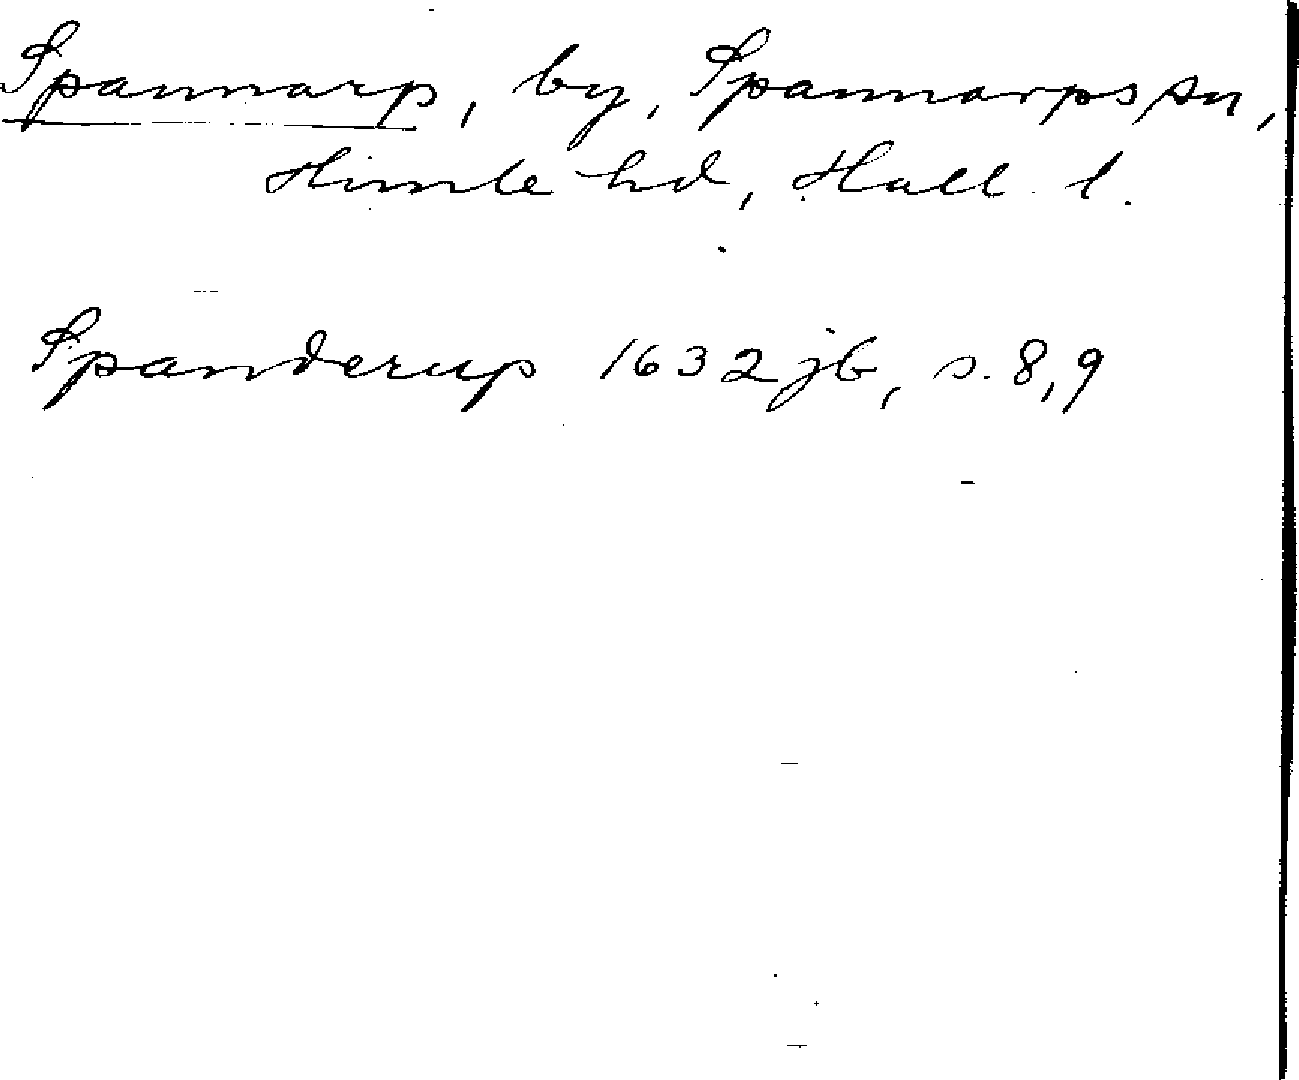 Spannarp, by, Spannarps sn,
Himle hd, Hall. l.
Spanderup 1632 jb, s. 8, 9